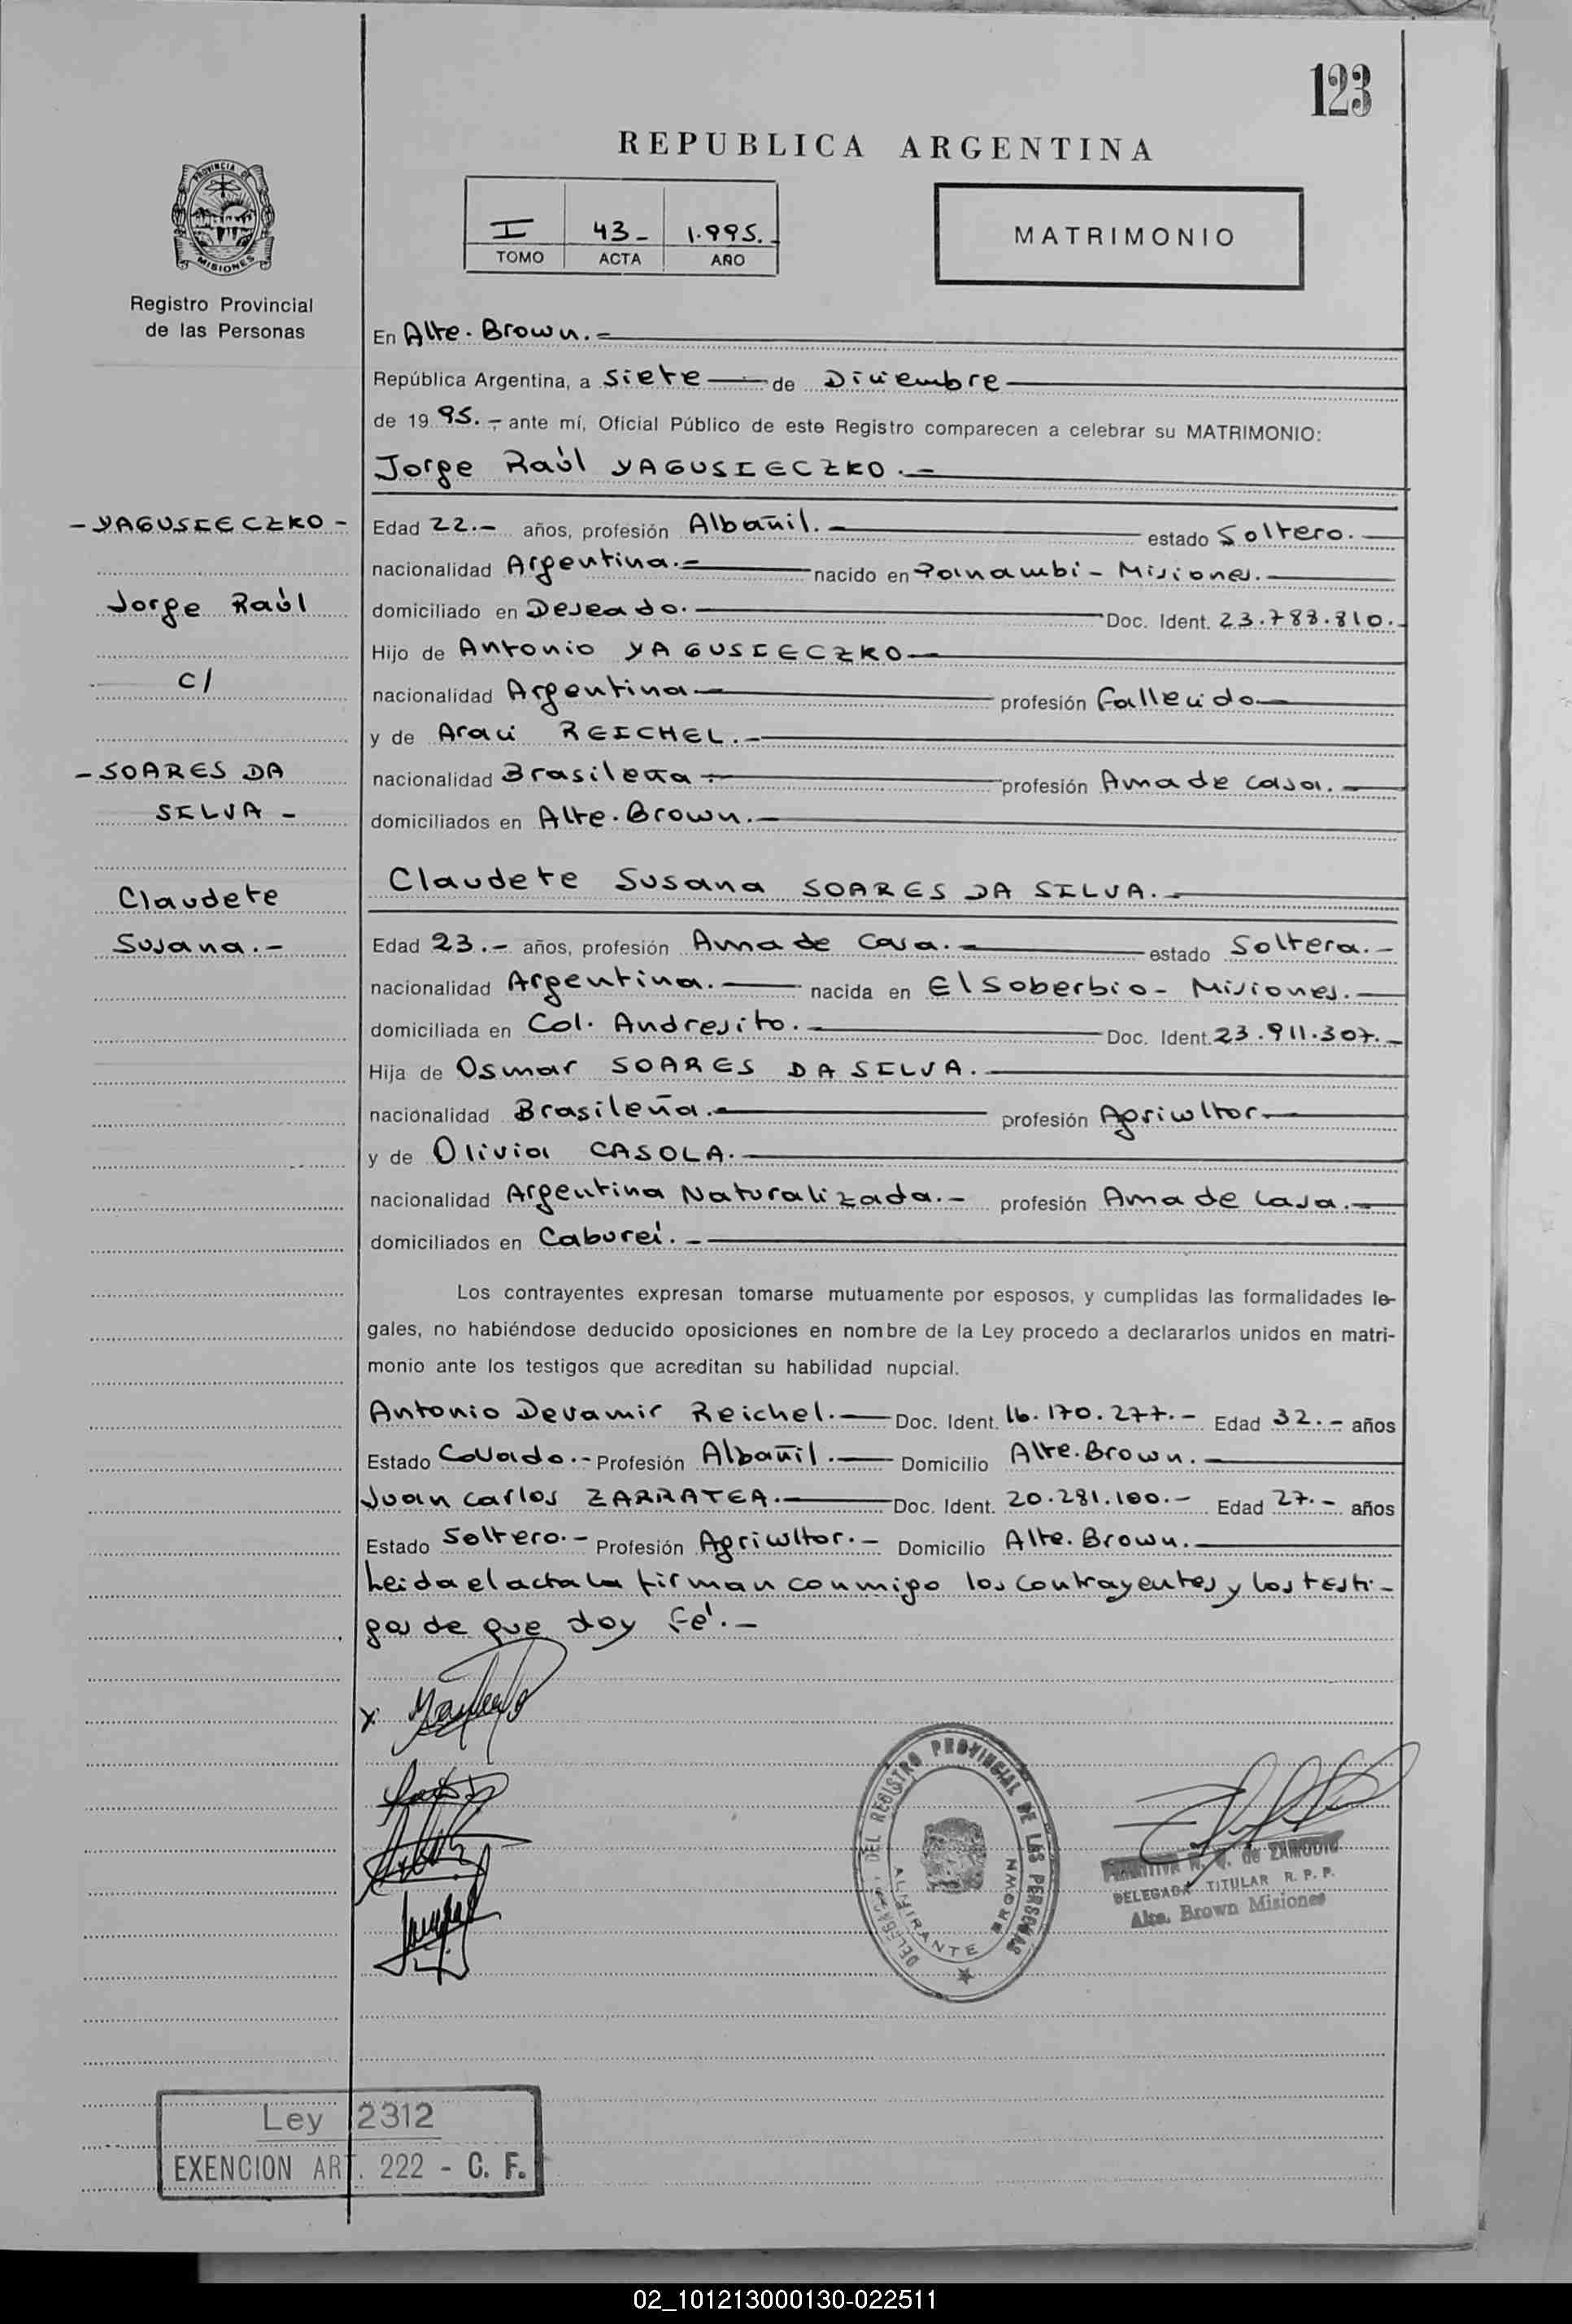 123
REPUBLICA ARGENTINA
PROVINCIA DE
MISIONES
I 43- 1.995.-
TOMO ACTA AÑO
MATRIMONIO
Registro Provincial
de las Personas
En Alte. Brown.-
República Argentina, a Siete de Diciembre
de 19 95.-, ante mí, Oficial Público de este Registro comparecen a celebrar su MATRIMONIO:
Jorge Raúl YAGUSIECZKO.-
- YAGUSIECZKO -
Jorge Raúl
c/
- SOARES DA
SILVA -
Claudete
Susana.-
Edad 22.- años, profesión Albañil.- estado Soltero.-
nacionalidad Argentina.- nacido en Panambí - Misiones.-
domiciliado en Deseado.- Doc. Ident. 23.783.810.-
Hijo de Antonio YAGUSIECZKO
nacionalidad Argentina profesión Fallecido
y de Araci REICHEL.-
nacionalidad Brasileña profesión Ama de casa.-
domiciliados en Alte. Brown.-
Claudete Susana SOARES DA SILVA.-
Edad 23.- años, profesión Ama de Casa.- estado Soltera.-
nacionalidad Argentina.- nacida en El Soberbio - Misiones.-
domiciliada en Col. Andresito.- Doc. Ident. 23.911.307.-
Hija de Osmar SOARES DA SILVA.
nacionalidad Brasileña.- profesión Agricultor.-
y de Olivia CASOLA.
nacionalidad Argentina Naturalizada.- profesión Ama de Casa.-
domiciliados en Cabureí.-
Los contrayentes expresan tomarse mutuamente por esposos, y cumplidas las formalidades le-
gales, no habiéndose deducido oposiciones en nombre de la Ley procedo a declararlos unidos en matri-
monio ante los testigos que acreditan su habilidad nupcial.
Antonio Devamir Reichel.- Doc. Ident. 16.170.277.- Edad 32.- años
Estado Casado.- Profesión Albañil.- Domicilio Alte. Brown.-
Juan Carlos ZARRATEA.- Doc. Ident. 20.281.100.- Edad 27.- años
Estado Soltero.- Profesión Agricultor.- Domicilio Alte. Brown.-
Leida el acta la firman conmigo los contrayentes y los testi-
gos de que doy fé.-
DELEGACION DEL REGISTRO PROVINCIAL DE LAS PERSONAS
ALMIRANTE BROWN
de ZAMUDIO
DELEGADA TITULAR R. P. P.
Alte. Brown Misiones
Ley 2312
EXENCION ART. 222 - C. F.
02_101213000130-022511